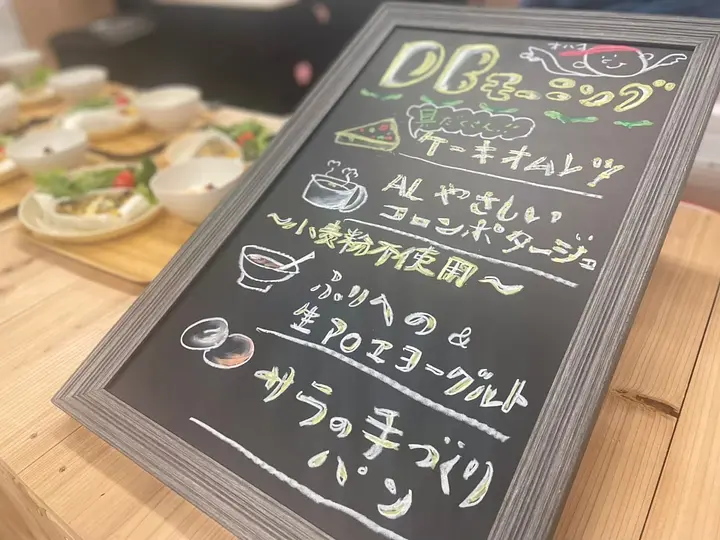 オハヨ
DBモーニング
具だくさん!!
ケーキオムレツ
ALやさしい
コーンポタージュ
～小麦粉不使用～
ぷりへの &
生アロエヨーグルト
サラの手づくり
パン